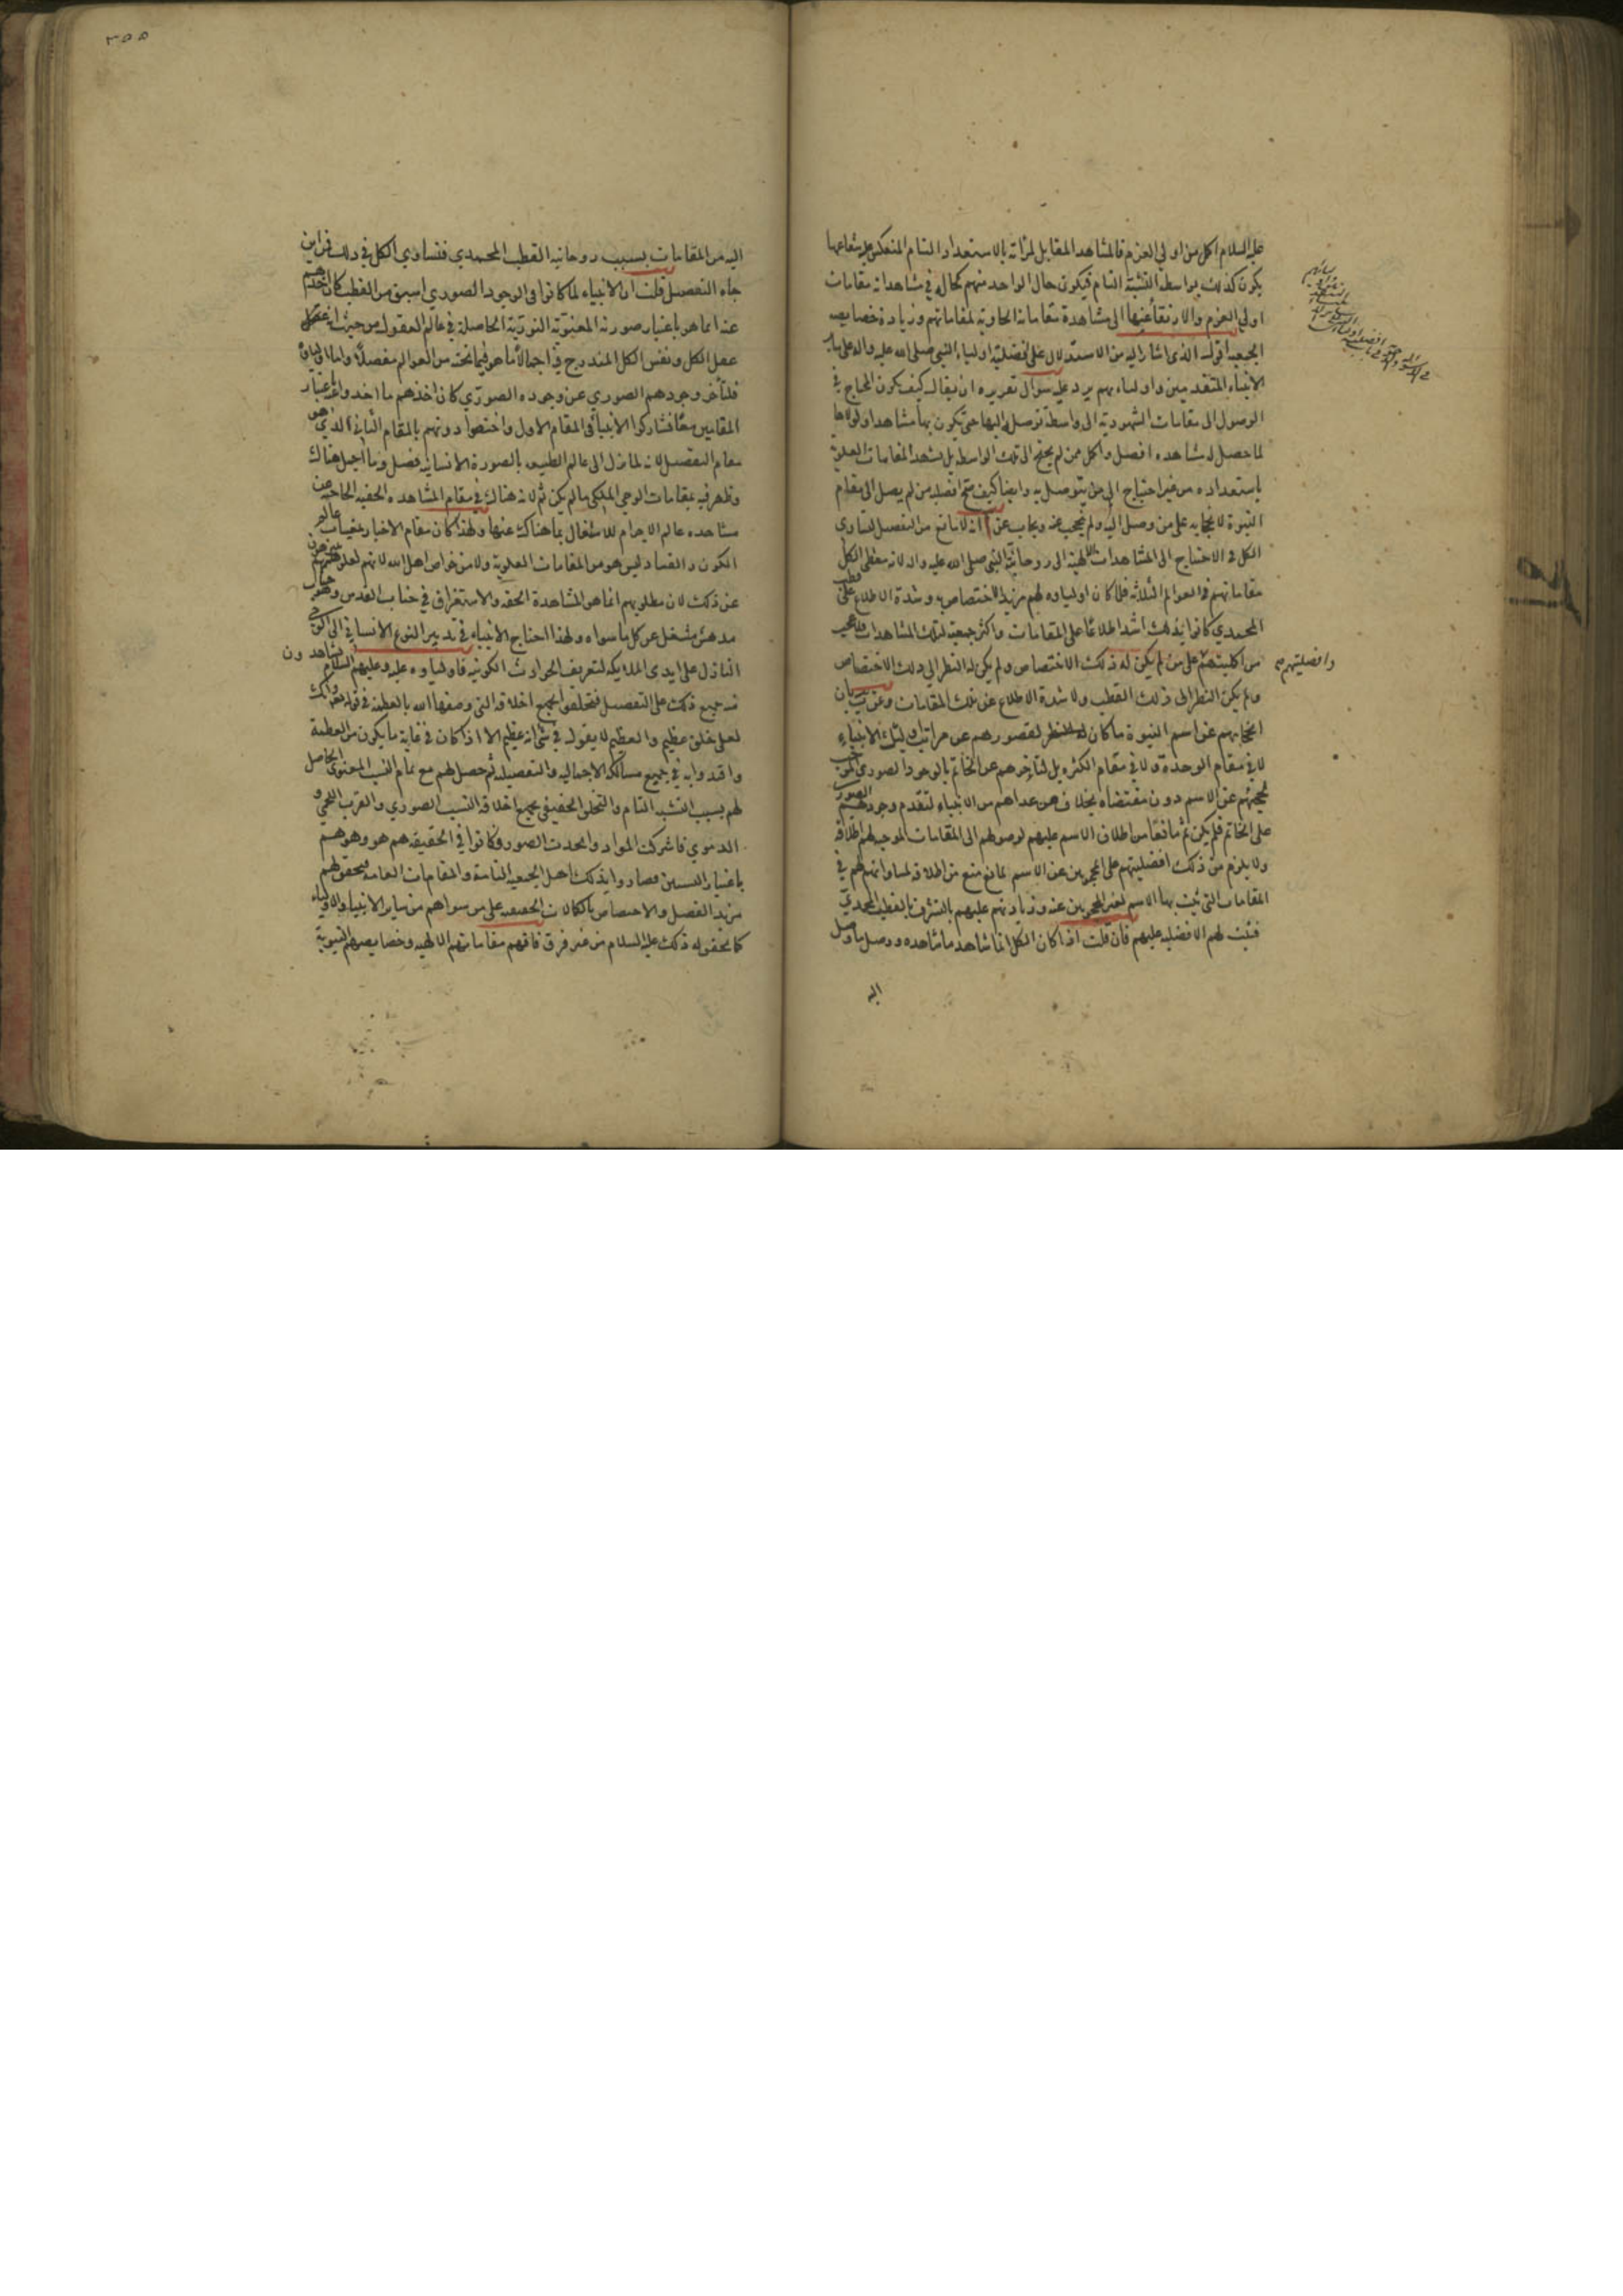 عليه السلام اكمل من اولي العزم فالمشاهد المقابل لمرآته بالاستعداد التام المنعكس عليه شعاعها
يكون كذلك بواسطة النسبة التام فيكون حال الواحد منهم كحاله في مشاهداته مقامات
اولي العزم والارتقاء عنها الى مشاهدة مقاماته الحاوية لمقاماتهم وزيادة خصايصه
الجمعية اقول الذي اشار اليه من الاستدلال على افضلية اولياء النبي صلى الله عليه واله على ساير
الانبياء المتقدمين واولياءهم يرد عليه سؤال تقريره ان يقال كيف يكون المحتاج في
الوصول الى مقامات الشهودية الى واسطة توصله اليها حتى يكون بها مشاهدا ولولاها
لما حصل له مشاهده افضل واكمل ممن لم يحتج الى تلك الواسطة بل يشهد المقامات العلية
باستعداده من غير احتياج الى من يتوصل به وايضا كيف صح افضلية من لم يصل الى مقام
النبوة لانحجابه على من وصل اليه ولم يحجب عنه ويجاب عن انه لا مانع من التفضيل لتساوي
الكل في الاحتياج الى المشاهدات الالهية الى روحانية النبي صلى الله عليه واله لانه معطي الكل
مقاماتهم في العوالم الثلاثة فلما كان اولياوه لهم مزيد الاختصاص به وشدة الاطلاع على قطب
المحمدي كانوا بذلك اشد اطلاعا على المقامات واكثر جمعية لتلك المشاهدات فلا عجب
من اكمليتهم على من لم يكن له ذلك الاختصاص ولم يكن له النظر الى ذلك الاختصاص
وافضليتهم
ولم يكن النظر الى ذلك القطب ولا شدة الاطلاع عن تلك المقامات وعن بيان
انحجابهم عن اسم النبوة ما كان للنظر لقصورهم عن مراتب تلك الانبياء
لا في مقام الوحدة ولا في مقام الكثرة بل لتاخرهم عن الخاتم بالوجود الصوري الموجب
لحجبهم عن الاسم دون مقتضاه بخلاف من عداهم من الانبياء لتقدم وجودهم الصوري
على الخاتم فلم يكن ثم مانعا من اطلاق الاسم عليهم لوصولهم الى المقامات الموجبة لهم اطلاقه
ولا يلزم من ذلك افضليتهم على المحجوبين عن الاسم لمانع منع من اطلاقه لمساواتهم لهم في
المقامات التي ثبت بها الاسم لغير المحجوبين عنه وزيادتهم عليهم بالتشرف بالقطب المحمدي
فثبت لهم الافضلية عليهم فان قلت اذا كان الكل انما شاهد ما شاهده ووصل ما وصل
اليه
٣٥٥
اليه من المقامات بسبب روحانية القطب المحمدي فتساوي الكل في ذلك فمن اين
جاء التفضيل قلت ان الانبياء لما كانوا في الوجود الصوري اسبق من القطب كان اخذهم
عنه انما هو باعتبار صورته المعنوية النورية الحاصلة في عالم العقول من حيث انه عقل
عقل الكل ونفس الكل المندرج فيه اجمالا ما هو فيما تحته من العوالم مفصلا واما اولياؤه
فلتأخر وجودهم الصوري عن وجوده الصوري كان اخذهم ما اخذوا باعتبار
المقامين معا فشاركوا الانبياء في المقام الاول واختصوا دونهم بالمقام الثاني الذي هو
مقام التفصيل لانه لما نزل الى عالم الطبيعة بالصورة الانسانية فصل فيه ما اجمل هناك
وظهر فيه بمقامات الوحي الملكي ما لم يكن ثم لانه هناك في مقام المشاهدة الحقية الحاجبة عن
مشاهدة عالم الاجرام للاشتغال بما هناك عنها ولهذا كان مقام الاخبار بمغيبات عالم
الكون والفساد ليس هو من المقامات العلوية ولا من خواص اهل الله لانهم لعلو همتهم معرضون
عن ذلك لان مطلوبهم انما هو المشاهدة الحقة والاستغراق في جناب القدس وهو جناب
مدهش مشغل عن كل ما سواه ولهذا احتاج الانبياء في تدبير النوع الانساني الى الوحي
النازل على ايدي الملايكة لتعريف الحوادث الكونية فاولياوه عليه وعليهم السلام يشاهدون
منه جميع ذلك على التفصيل فتخلقوا بجميع اخلاقه التي وصفها الله بالعظمة في قوله تعالى وانك
لعلى خلق عظيم والعظيم لا يقول في شئ انه عظيم الا اذا كان في غاية ما يكون من العظمة
واقتدوا به في جميع مسالكه الاجمالية والتفصيلية ثم حصل لهم مع تمام النسب المعنوي الحاصل
لهم بسبب التشبه التام والتخلق الحقيقي بجميع اخلاقه النسب الصوري والقرب اللحمي و
الدموي فاشتركت المواد واتحدت الصور وكانوا في الحقيقة هم هو وهو هم
باعتبار النسبين فصاروا بذلك اهل الجمعية التامة والمقامات العامة فيتحقق لهم
مزيد الفضل والاختصاص بالكمالات الحقيقية على من سواهم من ساير الانبياء والاولياء
كما تحقق له ذلك عليه السلام من غير فرق فاقهم مقاماتهم الالهية وخصايصهم النبوية